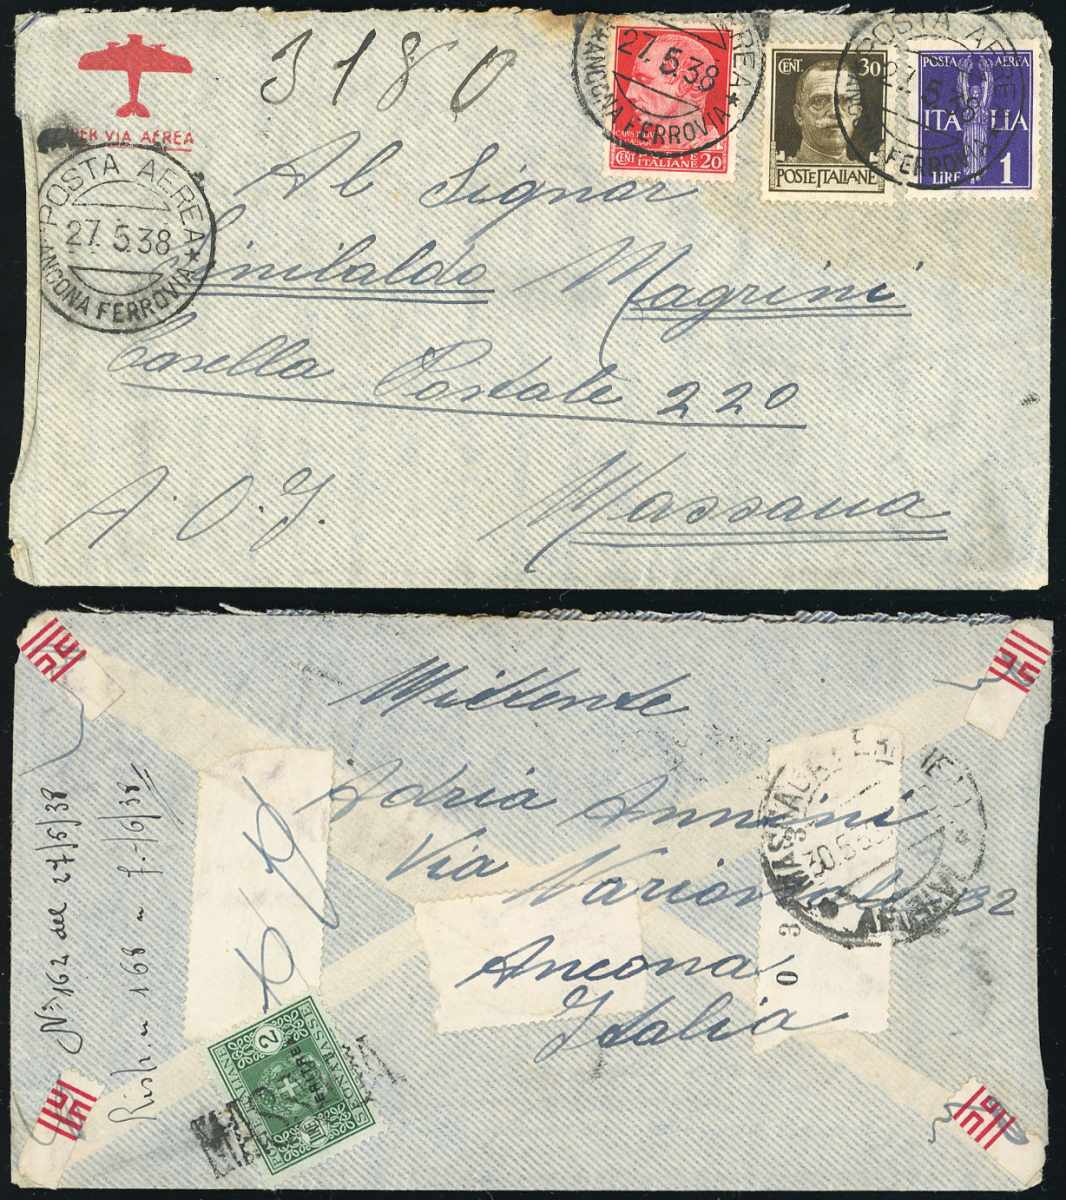 3180
PER VIA AEREA
POSTA AEREA
27.5.38
ANCONA FERROVIA
CENT 20
POSTE ITALIANE
POSTA AEREA
27.5.38
ANCONA FERROVIA
CENT. 30
POSTE ITALIANE
POSTA AEREA
ITALIA
LIRE 1
POSTA AEREA
27.5.38
ANCONA FERROVIA
Al Signor
Sinibaldo Magrini
Casella Postale 220
A. O. I. Massaua
Mittente
Adria Annini
Via 32
Ancona
Italia
MASSAUA
30.5.38
ERITREA
0 3
N° 162 del 27/5/38
Risp. n 168 " /6/38
2
SEGNATASSE
LIRE
ERITREA